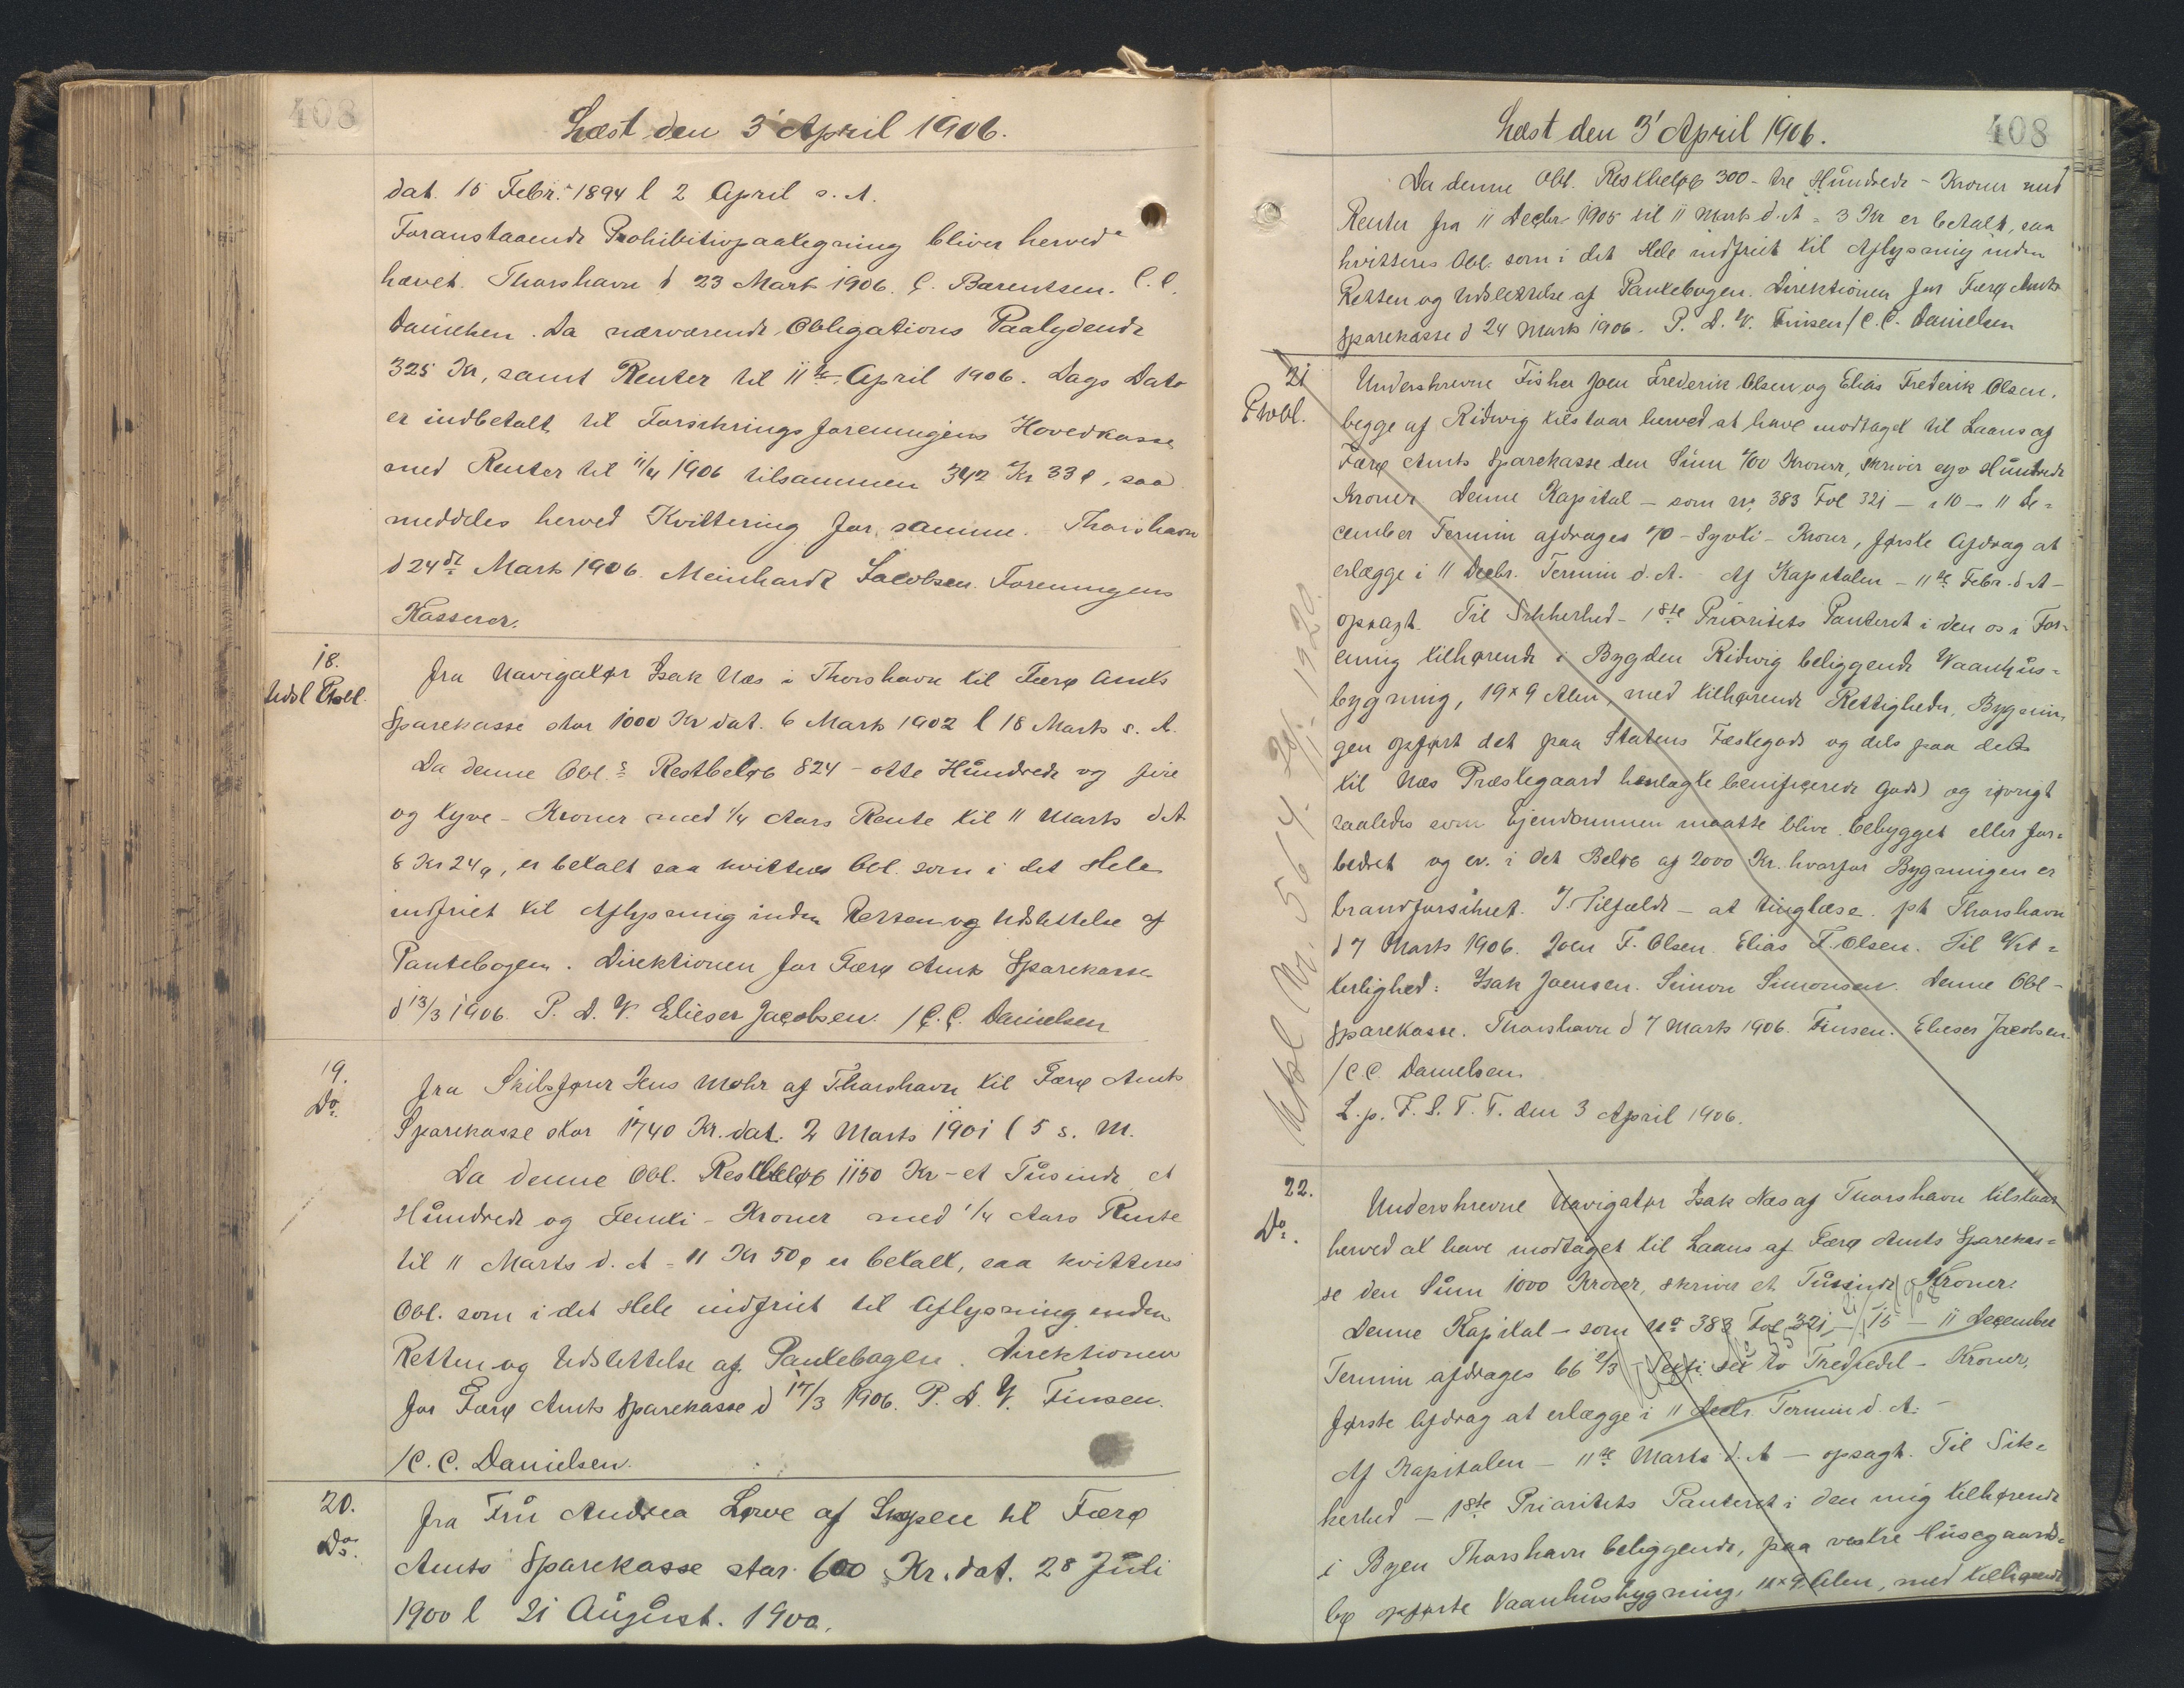 408
Læst den 3' April 1906.
dat. 15 Febr. 1894 l 2 April s. A.
Foranstaaende Prohibitivpaategning bliver herved
hævet. Thorshavn d 23 Marts 1906. C. Barentsen. C.C.
Danielsen. Da nærværende Obligations Paalydende
325 Kr, samt Renter til 11te April 1906. Dags Dato
er indbetalt til Forsikringsforeningens Hovedkasse
med Renter til 11/4 1906 tilsammen 342 Kr 33 ø, saa
meddeles herved Kvittering for samme. Thorshavn
d 24de Marts 1906. Meinhardt Jacobsen. Foreningens
Kasserer.
18.
Udsl Pobl.
fra Navigatør Isak Næs i Thorshavn til Færø Amts
Sparekasse stor 1000 Kr dat. 6 Marts 1902 l 18 Marts s. A.
Da denne Obl.s Restbeløb 824 - otte Hundrede og fire
og tyve - Kroner med 1/4 Aars Rente til 11 Marts d.A
8 Kr 24 ø, er betalt saa kvitteres Obl. som i det Hele
indfriet til Aflysning inden Retten og Udslettelse af
Pantebogen. Direktionen for Færø Amts Sparekasse
d 13/3 1906. P. D. V. Elieser Jacobsen. /C.C. Danielsen
19.
Do.
fra Skibsfører Jens Mohr af Thorshavn til Færø Amts
Sparekasse stor 1740 Kr. dat. 2 Marts 1901 l 5 s. M.
Da denne Obl. Restbeløb 1150 Kr - et Tusinde et
Hundrede og Femti - Kroner med 1/4 Aars Rente
til 11 Marts d. A = 11 Kr 50 ø er betalt, saa kvitteres
Obl. som i det Hele indfriet til Aflysning inden
Retten og Udslettelse af Pantebogen. Direktionen
for Færø Amts Sparekasse d 17/3 1906. P. D. V. Finsen.
/C. C. Danielsen.
20.
Do.
fra Fru Andrea Løwe af Skopen til Færø
Amts Sparekasse stor 600 Kr. dat. 28 Juli
1900 l 21 August. 1900.
Læst den 3' April 1906.
408
Da denne Obl. Restbeløb 300 - tre Hundrede - Kroner med
Renter fra 11 Decbr. 1905 til 11 Marts d. A = 3 Kr er betalt, saa
kvitteres Obl. som i det Hele indfriet til Aflysning inden
Retten og Udslettelse af Pantebogen. Direktionen for Færø Amts
Sparekasse d 24 Marts 1906. P. D. V. Finsen / C.C. Danielsen
21
Pobl.
Underskrevne Fisker Joen Frederik Olsen og Elias Frederik Olsen,
begge af Ridevig tilstaar herved at have modtaget til Laans af
Færø Amts Sparekasse den Sum 700 Kroner, skriver syv Hundrede
Kroner. Denne Kapital - som Nr. 383 Fol 321 - : 10 - 11 De=
cember Termin afdrages 70 - Syvti - Kroner, første Afdrag at
erlægge i 11 Decbr. Termin d. A. - Af Kapitalen - 11te Febr. d A -
opsagt. Til Sikkerhed - 1ste Prioritets Panteret i den os i For=
ening tilhørende i Bygden Ridevig beliggende Vaanhus=
bygning, 19 x 9 Alen, med tilhørende Rettigheder, Bygnin
gen opført det paa Statens Fæstegods og dels paa dets
til Næs Præstegaard henlagte beneficerede Gods) og iøvrigt
saaledes som Ejendommen maatte blive bebygget eller for=
bedret og ev. i det Beløb af 2000 Kr. hvorfor Bygningen er
brandforsikret. I Tilfælde - at tinglæse. pt Thorshavn
d 7 Marts 1906. Joen F. Olsen. Elias F. Olsen. Til Vit=
terlighed: Isak Joensen. Simon Simonsen. Denne Obl -
Sparekasse. Thorshavn d 7 Marts 1906. Finsen. Elieser Jacobsen.
/C.C. Danielsen.
L. p. F. S. T. T. den 3 April 1906.
Udsl Nr. 564. 1920.
22.
Do.
Underskrevne Navigatør Isak Næs af Thorshavn tilstaar
herved at have modtaget til Laans af Færø Amts Sparekas=
se den Sum 1000 Kroner, skriver et Tusinde Kroner.
Denne Kapital - som No 383 Fol 321, - 15 - 11 December
Termin afdrages 66 2/3 - Sexti sex to Trediedel - Kroner,
første Afdrag at erlægge i 11 Decbr. Termin d. A. -
Af Kapitalen - 11te Marts d. A - opsagt. Til Sik=
kerhed - 1ste Prioritets Panteret i den mig tilhørende
i Byen Thorshavn beliggende, paa vestre Husegaards=
bø opførte Vaanhusbygning, x 9 Alen, med tilhørende